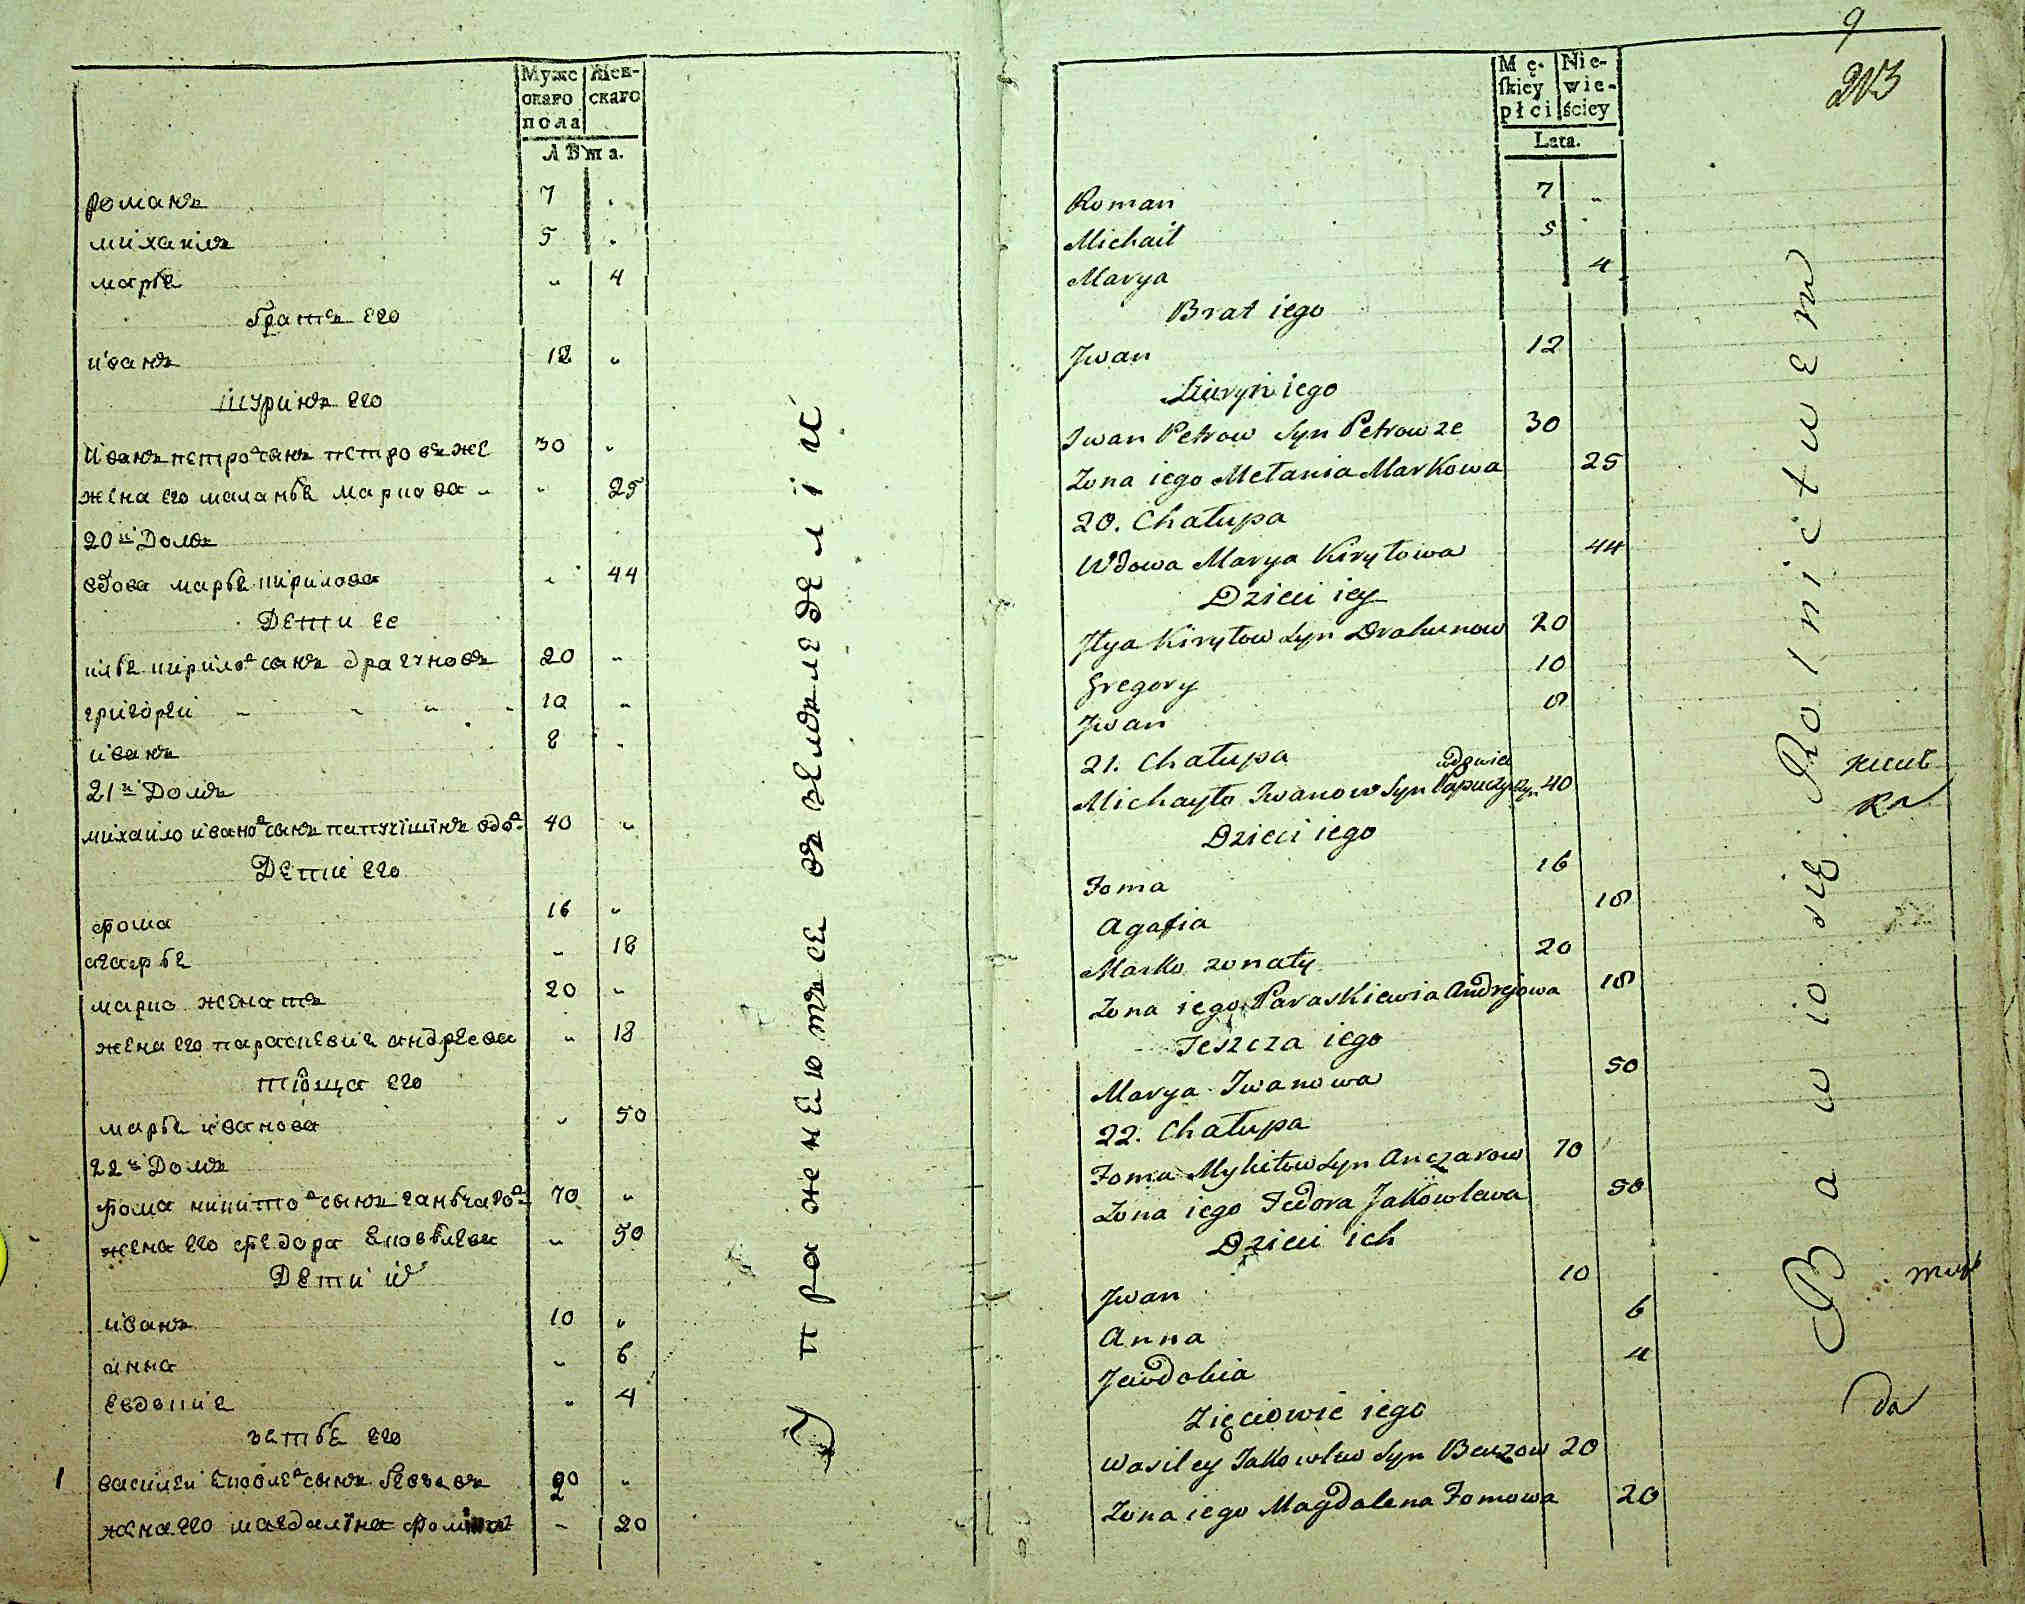 Мужс Жен-
скаго скаго
пола
Лѣта.
романъ 7 "
михаилъ 5 "
марья " 4
братъ его
иванъ 12 "
шуринъ его
иванъ петровъ сынъ петровъ же 30 "
жена его маланья маркова " 25
20й Домъ
вдова марья кирилова " 44
Дети ее
илья кириловъ сынъ драгуновъ 20 "
григорей " " " " 10 "
иванъ 8 "
21й Домъ
михаило ивановъ сынъ папучишинъ вдов 40 "
Дети его
фома 16 "
агафья " 18
марко женатъ 20 "
жена его параскевия андреева " 18
тюща его
марья иванова " 50
22й Домъ
фома никитовъ сынъ ганчаров 70 "
жена его федора яковлева " 50
Дети их
иванъ 10 "
анна " 6
евдокия " 4
зятья его
1 василеи яковлев сынъ 20 "
жена его магдалина " 20
упражнеются въ земледелии
9
203
Mę- Nie-
skiey wie-
płci ściey
Lata.
Roman 7 "
Michaił 5
Marya 4
Brat iego
Jwan 12
Szuryn iego
Iwan Petrow Syn Petrow ze 30
Zona iego Mełania Markowa 25
20. Chałupa
Wdowa Marya Kiryłowa 44
Dzieci iey
Jłya Kiryłow Syn Drahunow 20
Gregory 10
Jwan 8
21. Chałupa
wdowiec
Michayło Iwanow Syn Papuczyszyn 40
Dzieci iego
Foma 16
Agafia 18
Marko zonaty 20
Zona iego Paraskiewia Andrejowa 18
Teszcza iego
Marya Iwanowa 50
22. Chałupa
Foma Mykitow Syn Anczarow 70
Zona iego Fedora Jakowlewa 50
Dzieci ich
Jwan 10
Anna 6
Jewdokia 4
Zięciowie iego
Wasiley Jakowlew Syn 20
Zona iego Magdalena Fomowa 20
Bawio się Rolnictwem